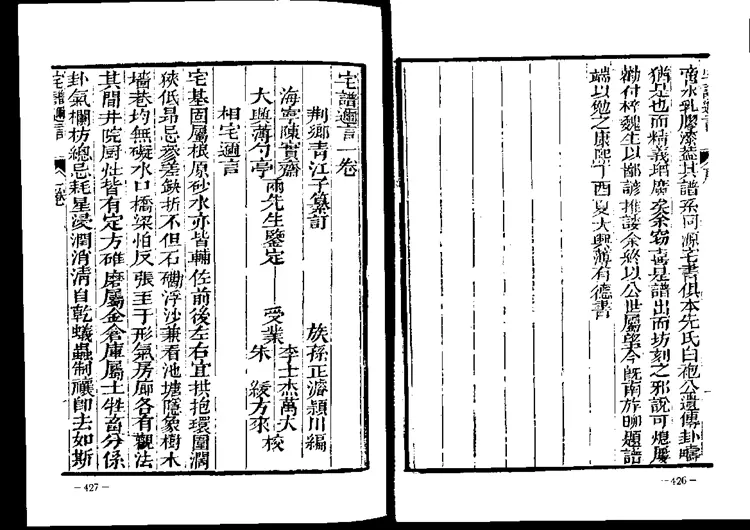 啻水乳膠漆蓋其譜系同源宅書俱本先氏白袍公遺傳卦疇
猶是也而精義增廣矣余窃喜是譜出而坊刻之邪說可熄屢
勸付梓魏生以鄭諺推諉余終以公世屬望今既南旋聊題譜
端以勉之康熙丁酉夏大興薄有德書
—426—
宅譜邇言一卷
荆鄉青江子纂訂
族孫正濬頴川編
海寧陳實齋
大興薄勺亭
兩先生鑒定
受業
李士杰萬大
朱綬方來
校
相宅邇言
宅基固屬根原砂水亦皆輔佐前後左右宜拱抱環圍濶
狹低昂忌參差缺折不但石磡浮沙兼看池塘隱象樹木
墻巷均無礙水口橋梁怕反張至于形氣房廊各有觀法
其間井院厨灶皆有定方碓磨屬金倉庫屬土牲畜分係
卦氣欄枋總忌耗星浸潤消淸自乾蟻蟲制禳即去如斯
宅譜邇言
一卷
—427—